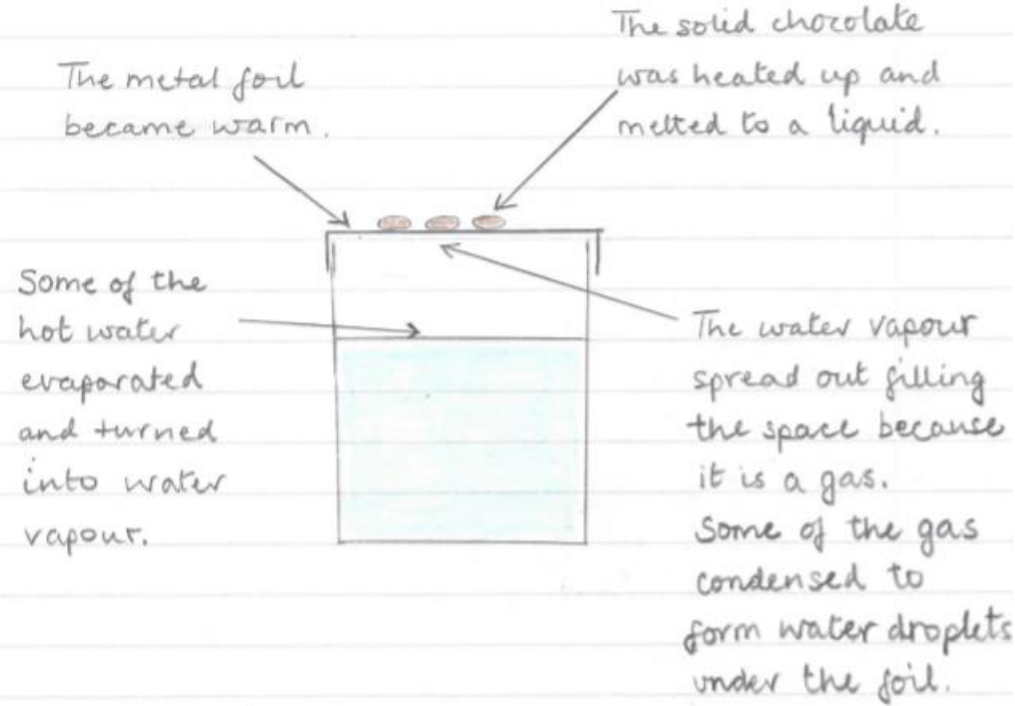 The solid chocolate
was heated up and
melted to a liquid.
The metal foil
became warm.
Some of the
hot water
evaporated
and turned
into water
vapour.
The water vapour
spread out filling
the space because
it is a gas.
Some of the gas
condensed to
form water droplets
under the foil.